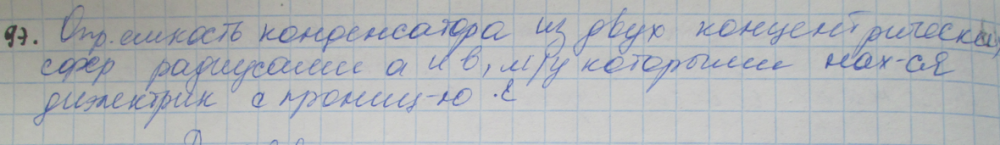 97. Опр. емкость конденсатора из двух концентрически
сфер радиусами a и b, м/у которыми нах-ся
диэлектрик с прониц-ю ε